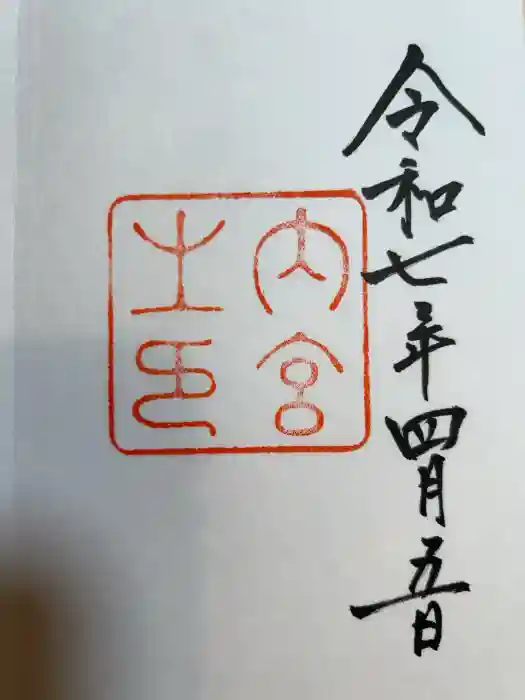 令和七年四月五日
内宮
之印